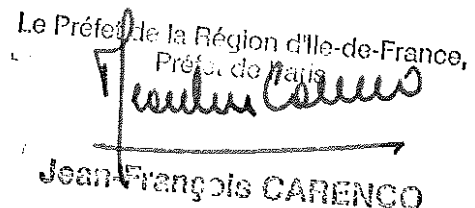 Le Préfet de la Région d'Ile-de-France,
Préfet de Paris
Jean-François CARENCO